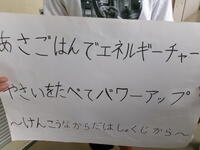 あさごはんでエネルギーチャー
やさいをたべてパワーアップ
～けんこうなからだはしょくじから～